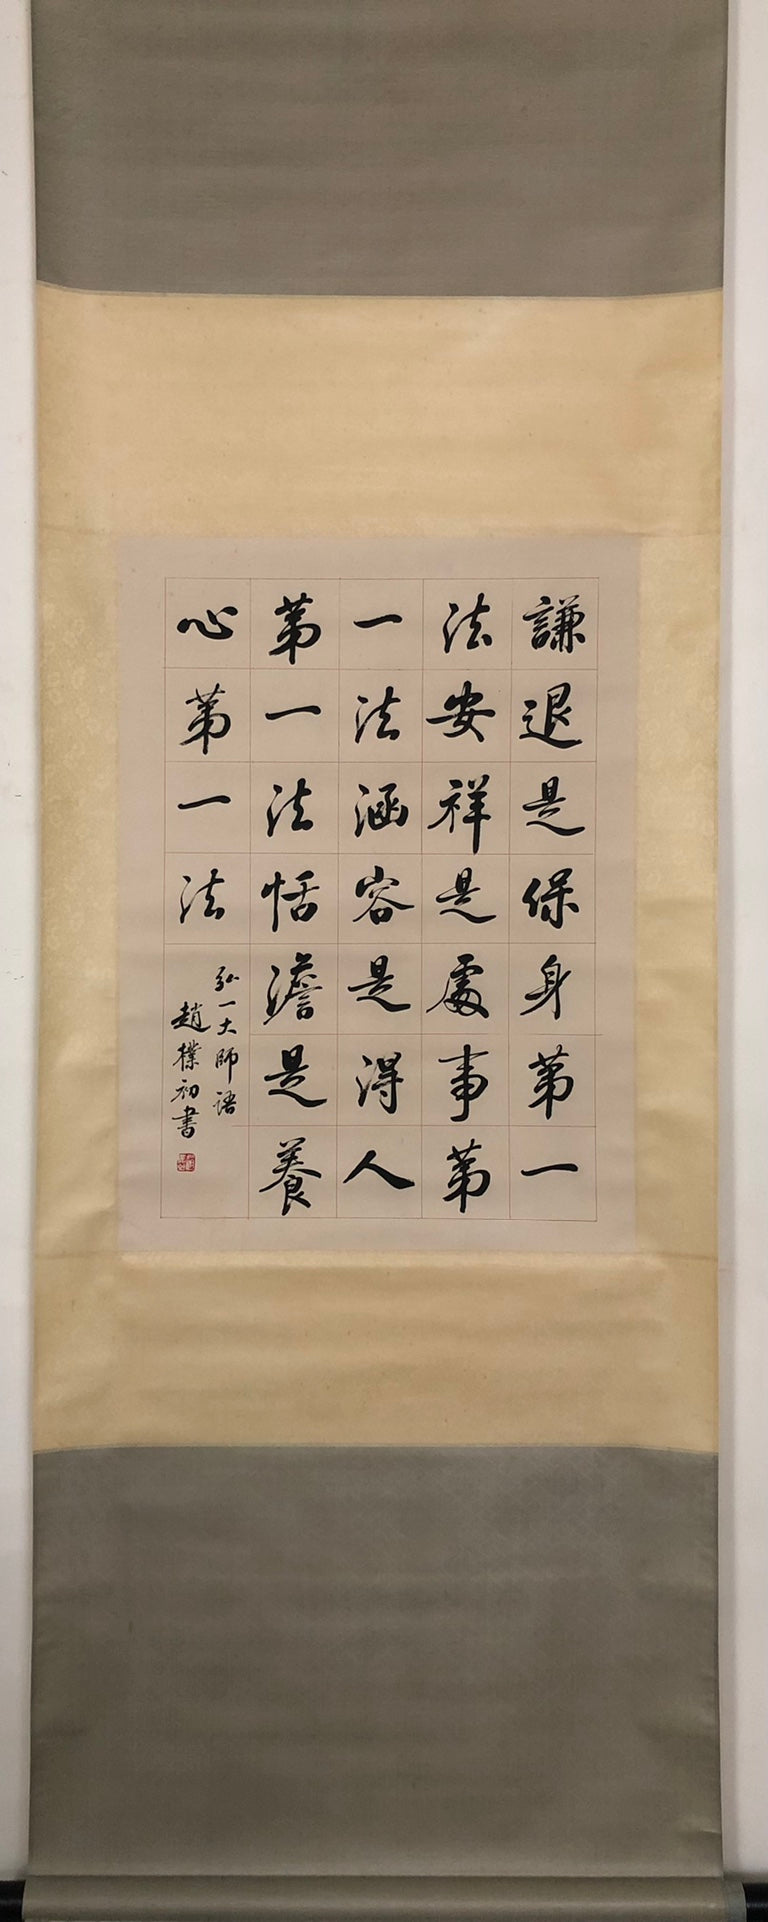 謙退是保身第一
法安祥是處事第
一法涵容是得人
第一法恬澹是養
心第一法
弘一大師語
趙樸初書